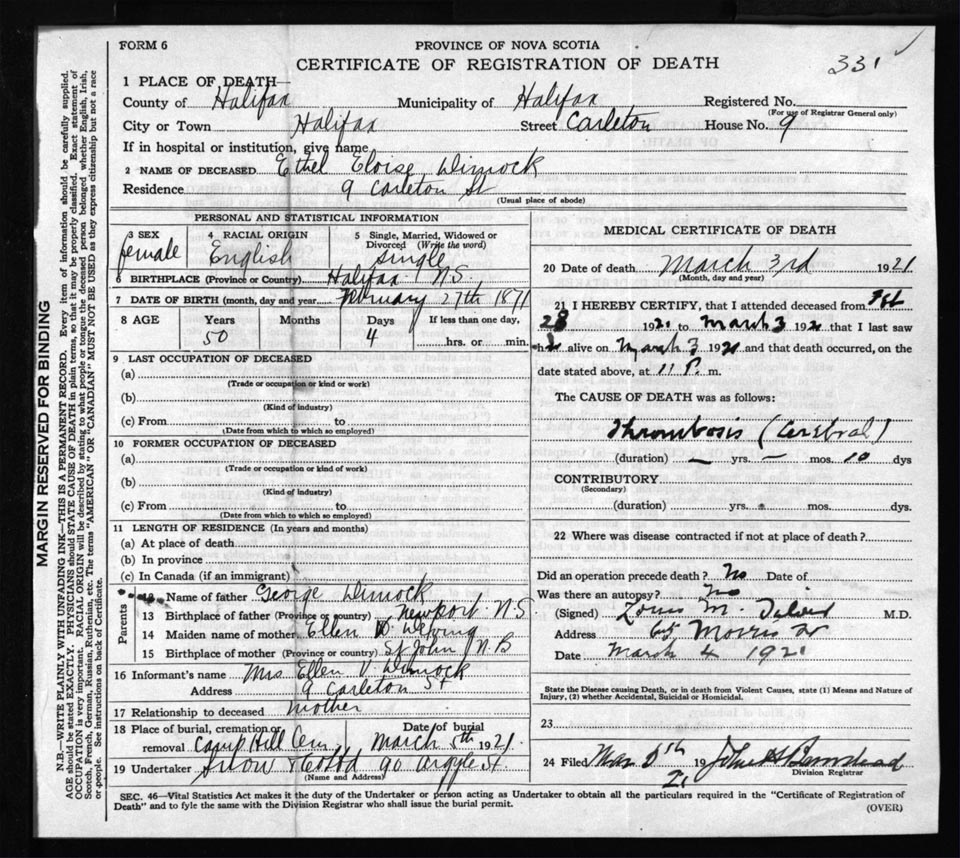 FORM 6
PROVINCE OF NOVA SCOTIA
CERTIFICATE OF REGISTRATION OF DEATH
331
1 PLACE OF DEATH—
County of Halifax Municipality of Halifax Registered No.
(For use of Registrar General only)
City or Town Halifax Street Carleton House No. 9
If in hospital or institution, give name
2 NAME OF DECEASED Ethel Eloise Dimock
Residence 9 Carleton St
(Usual place of abode)
PERSONAL AND STATISTICAL INFORMATION
3 SEX female
4 RACIAL ORIGIN English
5 Single, Married, Widowed or Divorced (Write the word) Single
6 BIRTHPLACE (Province or Country) Halifax N.S.
7 DATE OF BIRTH (month, day and year) February 27th 1871
8 AGE Years Months Days If less than one day,
50 4 hrs. or min.
9 LAST OCCUPATION OF DECEASED
(a)
(Trade or occupation or kind or work)
(b)
(Kind of industry)
(c) From to
(Date from which to which so employed)
10 FORMER OCCUPATION OF DECEASED
(a)
(Trade or occupation or kind of work)
(b)
(Kind of industry)
(c) From to
(Date from which to which so employed)
11 LENGTH OF RESIDENCE (In years and months)
(a) At place of death
(b) In province
(c) In Canada (if an immigrant)
Parents
12 Name of father George Dimock
13 Birthplace of father (Province or country) Newport N.S
14 Maiden name of mother Ellen
15 Birthplace of mother (Province or country) St John N.B
16 Informant's name Mrs Ellen V. Dimock
Address 9 Carleton St
17 Relationship to deceased mother
18 Place of burial, cremation or removal Camp Hill Cem. Date of burial March 5th 1921.
19 Undertaker Snow & Co Ltd 90 Argyle St.
(Name and Address)
MEDICAL CERTIFICATE OF DEATH
20 Date of death March 3rd 1921
(Month, day and year)
21 I HEREBY CERTIFY, that I attended deceased from Feb
28 1921 to March 3 1921 that I last saw
h alive on March 3 1921 and that death occurred, on the
date stated above, at 11 P. m.
The CAUSE OF DEATH was as follows:
Thrombosis (Cerebral)
(duration) — yrs. — mos. 10 dys
CONTRIBUTORY
(Secondary)
(duration) yrs. mos. dys.
22 Where was disease contracted if not at place of death?
Did an operation precede death? No Date of
Was there an autopsy? No
(Signed) Louis M. M.D.
Address Morris St
Date March 4 1921
State the Disease causing Death, or in death from Violent Causes, state (1) Means and Nature of
Injury, (2) whether Accidental, Suicidal or Homicidal.
23
24 Filed Mar 5th 1921 John A
Division Registrar
SEC. 46—Vital Statistics Act makes it the duty of the Undertaker or person acting as Undertaker to obtain all the particulars required in the "Certificate of Registration of
Death" and to fyle the same with the Division Registrar who shall issue the burial permit.
(OVER)
MARGIN RESERVED FOR BINDING
N.B.—WRITE PLAINLY WITH UNFADING INK—THIS IS A PERMANENT RECORD. Every item of information should be carefully supplied.
AGE should be stated EXACTLY. PHYSICIANS should STATE CAUSE OF DEATH in plain terms, so that it may be properly classified. Exact statement of
OCCUPATION is very important. RACIAL ORIGIN will be described by stating to what people or tongue the deceased person belonged whether English, Irish,
Scotch, French, German, Russian, Ruthenian, etc. The terms "AMERICAN" OR "CANADIAN" MUST NOT BE USED as they express citizenship but not a race
or people. See instructions on back of Certificate.